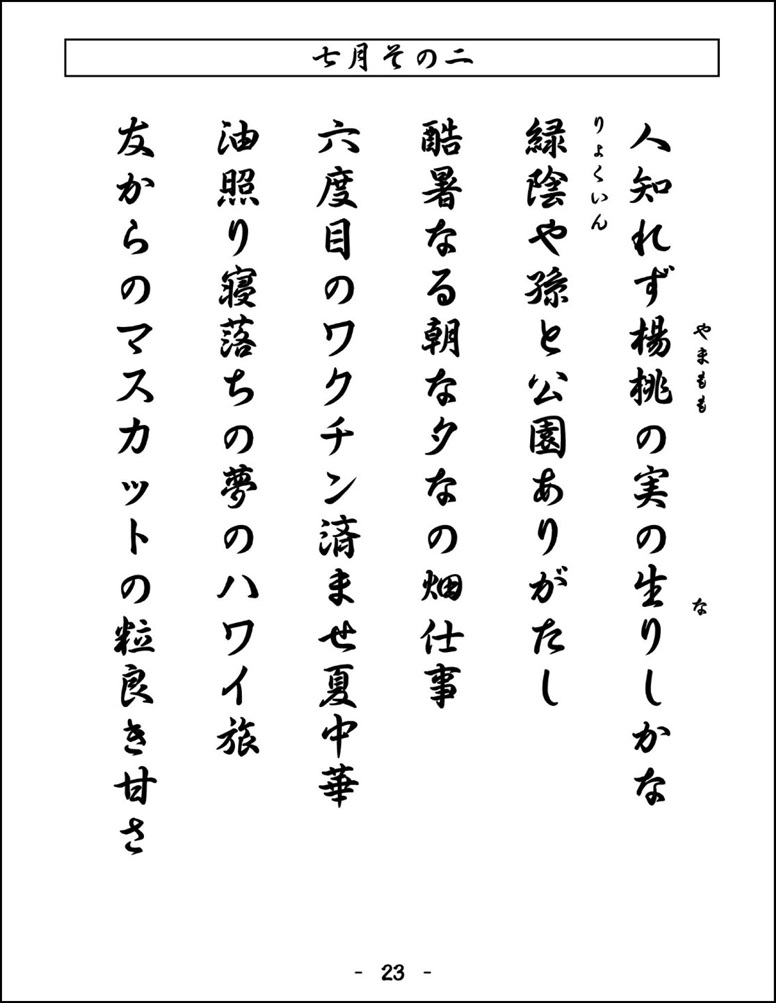 七月その二
人知れず楊桃の実の生りしかな
やまもも
な
緑陰や孫と公園ありがたし
りょくいん
酷暑なる朝な夕なの畑仕事
六度目のワクチン済ませ夏中華
油照り寝落ちの夢のハワイ旅
友からのマスカットの粒良き甘さ
- 23 -